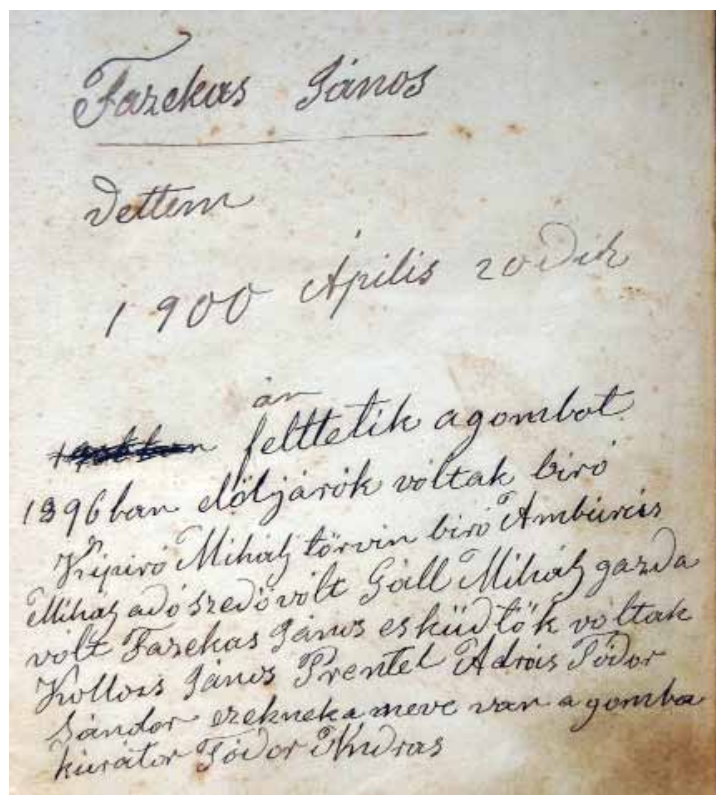 Fazekas János
Vettem
1900 Április 20dik
án
felttetik agombot
1896ban elöljárók vóltak biró
Mihaj törvin biró Ambúriss
Mihaj adó szedő vólt Gáll Mihaj gazda
vólt Fazekas János esküdtök vóltak
János Prentel Adrás Tódor
Sándor ezekneka neve van a gomba
kurátor Tódor Andras